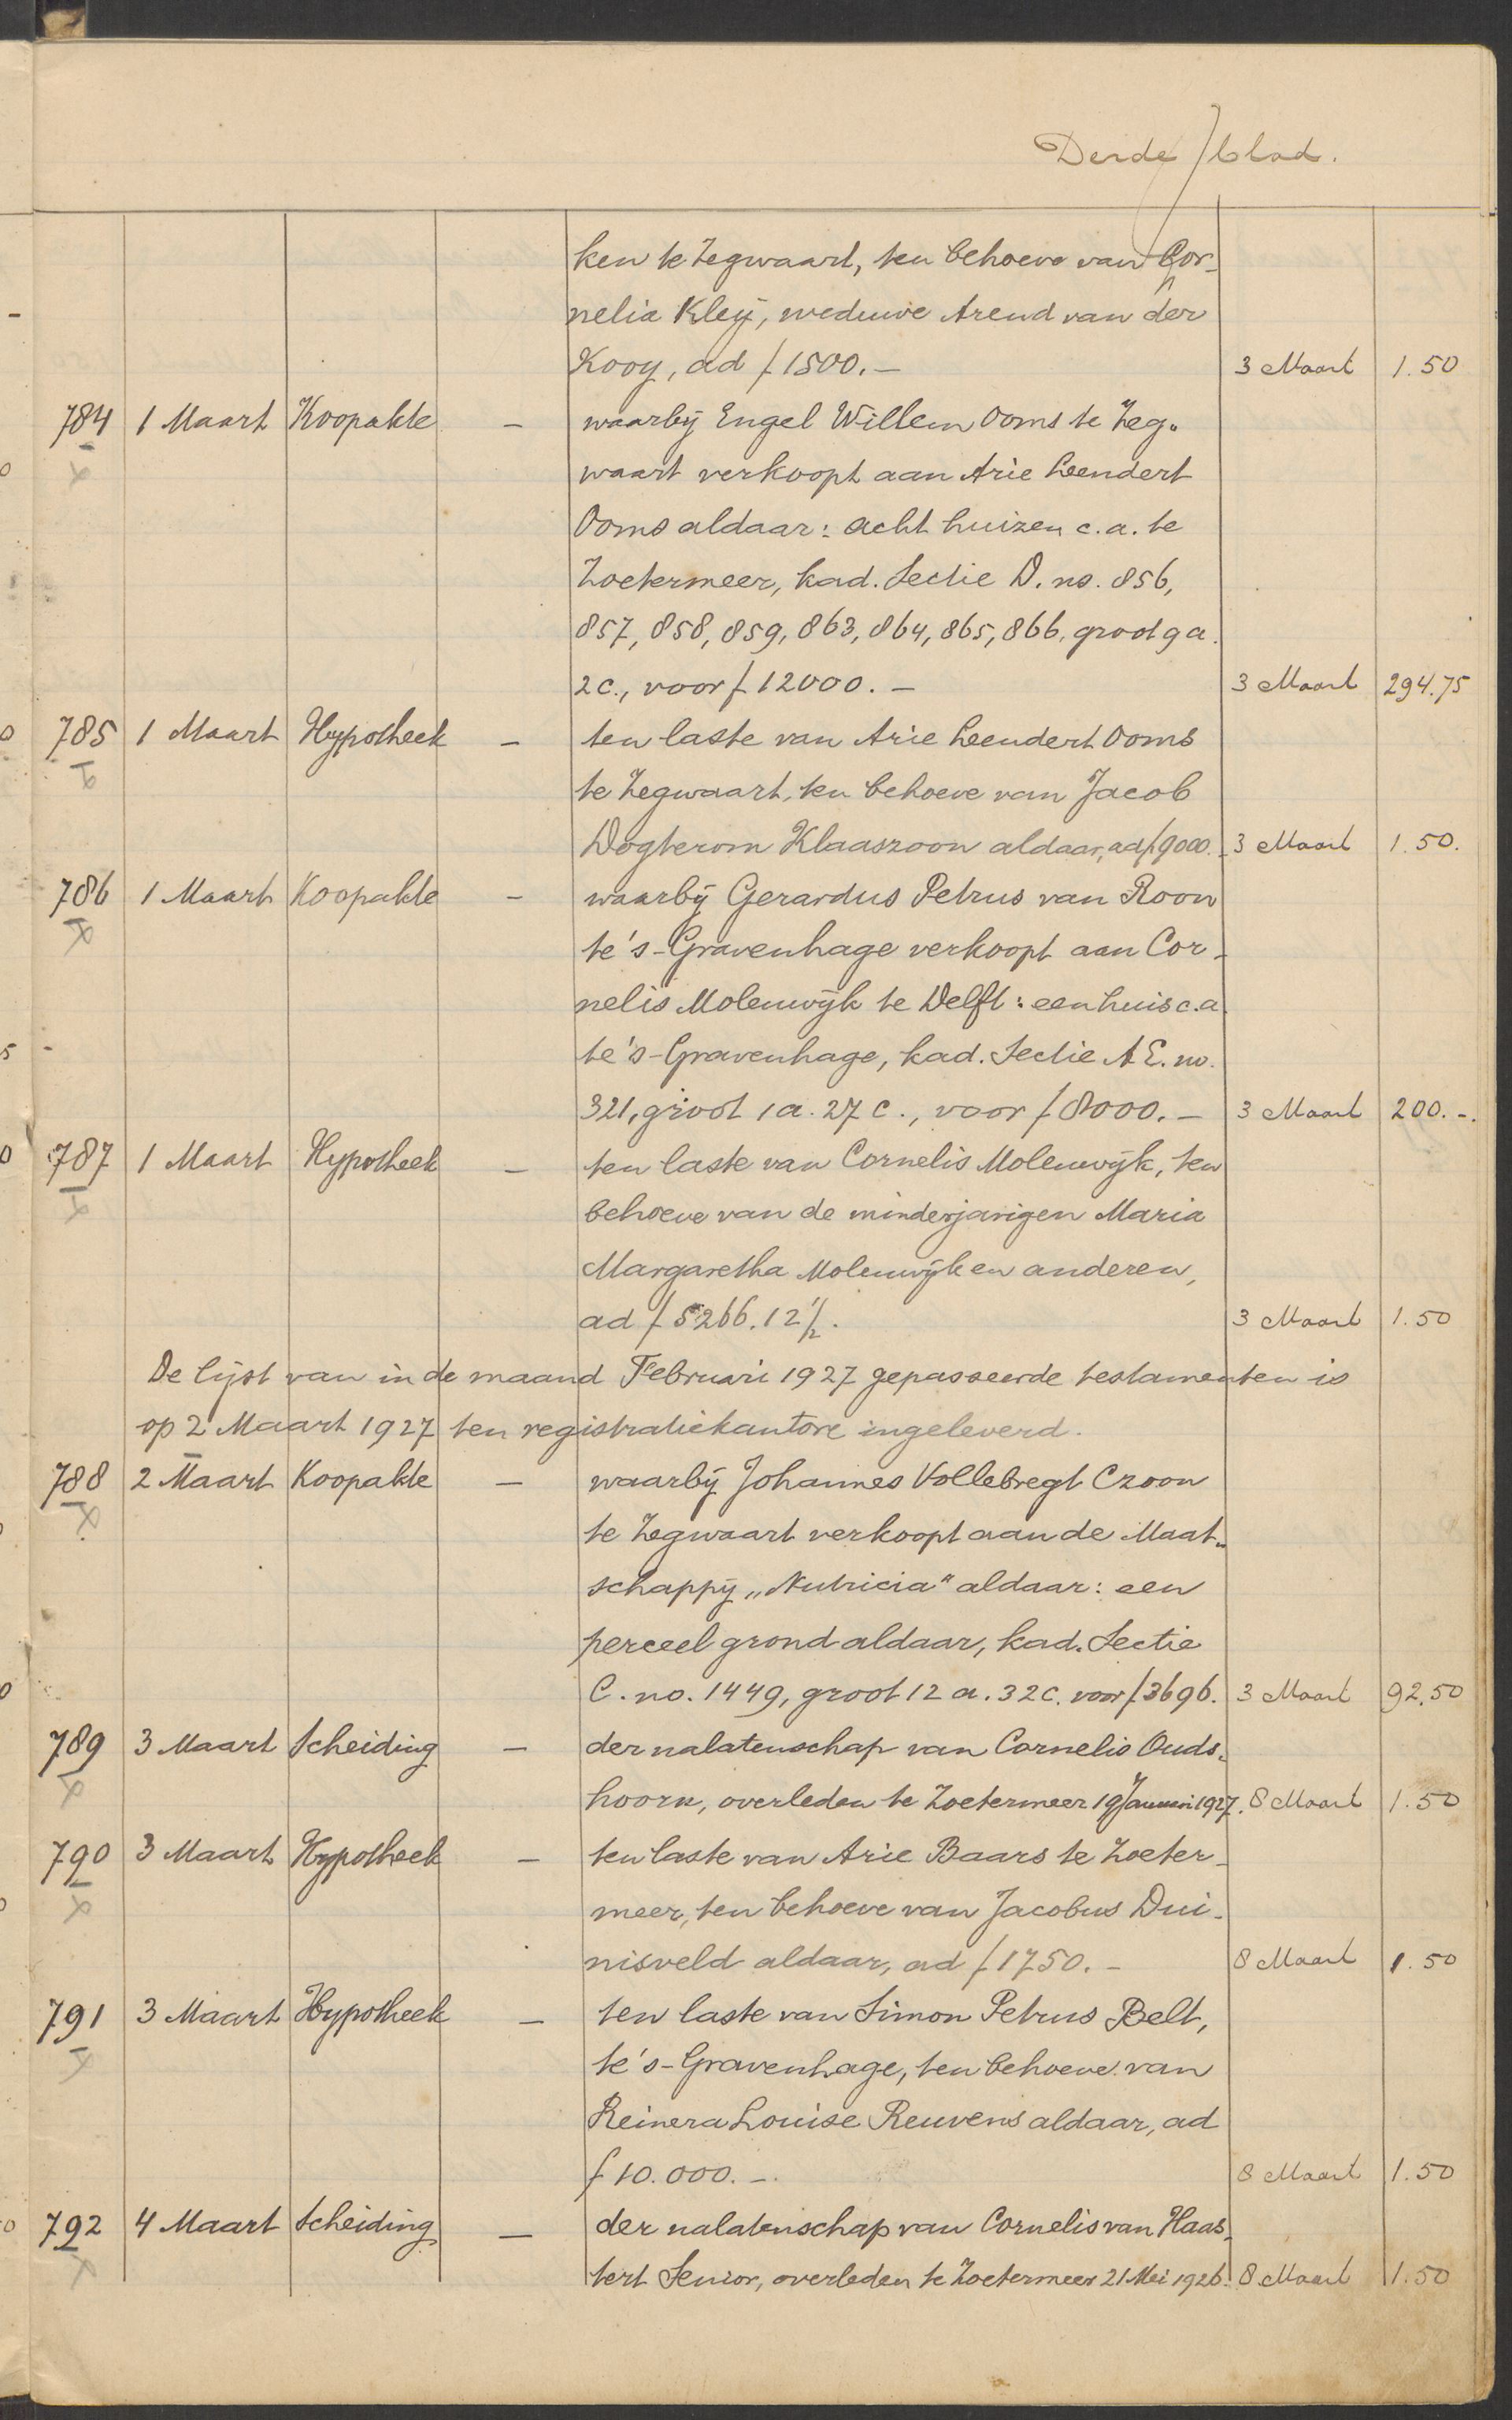 Derde blad.
ken te Zegwaart, ten behoeve van Cor-
nelia Kleij, weduwe Arend van der
Kooy, ad ƒ 1500.— 3 Maart 1.50
784 1 Maart Koopakte — waarbij Engel Willem Ooms te Zeg-
waart verkoopt aan Arie Leendert
Ooms aldaar: acht huizen c.a. te
Zoetermeer, kad. Sectie D. no. 856,
857, 858, 859, 863, 864, 865, 866, groot 9 a.
2 c., voor ƒ 12000.— 3 Maart 294.75
785 1 Maart Hypotheek — ten laste van Arie Leendert Ooms
te Zegwaart, ten behoeve van Jacob
Dogterom Klaaszoon aldaar, ad ƒ 9000.- 3 Maart 1.50.
786 1 Maart Koopakte — waarbij Gerardus Petrus van Roon
te 's-Gravenhage verkoopt aan Cor-
nelis Molenwijk te Delft: een huis c.a.
te 's-Gravenhage, kad. Sectie A E. no.
321, groot 1 a. 27 c., voor ƒ 8000.— 3 Maart 200.-.
787 1 Maart Hypotheek — ten laste van Cornelis Molenwijk, ten
behoeve van de minderjarigen Maria
Margaretha Molenwijk en anderen,
ad ƒ 5266.12½. 3 Maart 1.50
De lijst van in de maand Februari 1927 gepasseerde testamenten is
op 2 Maart 1927 ten registratiekantore ingeleverd.
788 2 Maart Koopakte — waarbij Johannes Vollebregt Czoon
te Zegwaart verkoopt aan de Maat-
schappij „Nutricia" aldaar: een
perceel grond aldaar, kad. Sectie
C. no. 1449, groot 12 a. 32 c. voor ƒ 3696. 3 Maart 92.50
789 3 Maart Scheiding — der nalatenschap van Cornelis Ouds-
hoorn, overleden te Zoetermeer 19 Januari 1927. 8 Maart 1.50
790 3 Maart Hypotheek — ten laste van Arie Baars te Zoeter-
meer, ten behoeve van Jacobus Dui-
nisveld aldaar, ad ƒ 1750.— 8 Maart 1.50
791 3 Maart Hypotheek — ten laste van Simon Petrus Belt,
te 's-Gravenhage, ten behoeve van
Reinera Louise Reuvens aldaar, ad
ƒ 10.000.— 8 Maart 1.50
792 4 Maart Scheiding — der nalatenschap van Cornelis van Haas-
tert Senior, overleden te Zoetermeer 21 Mei 1926. 8 Maart 1.50